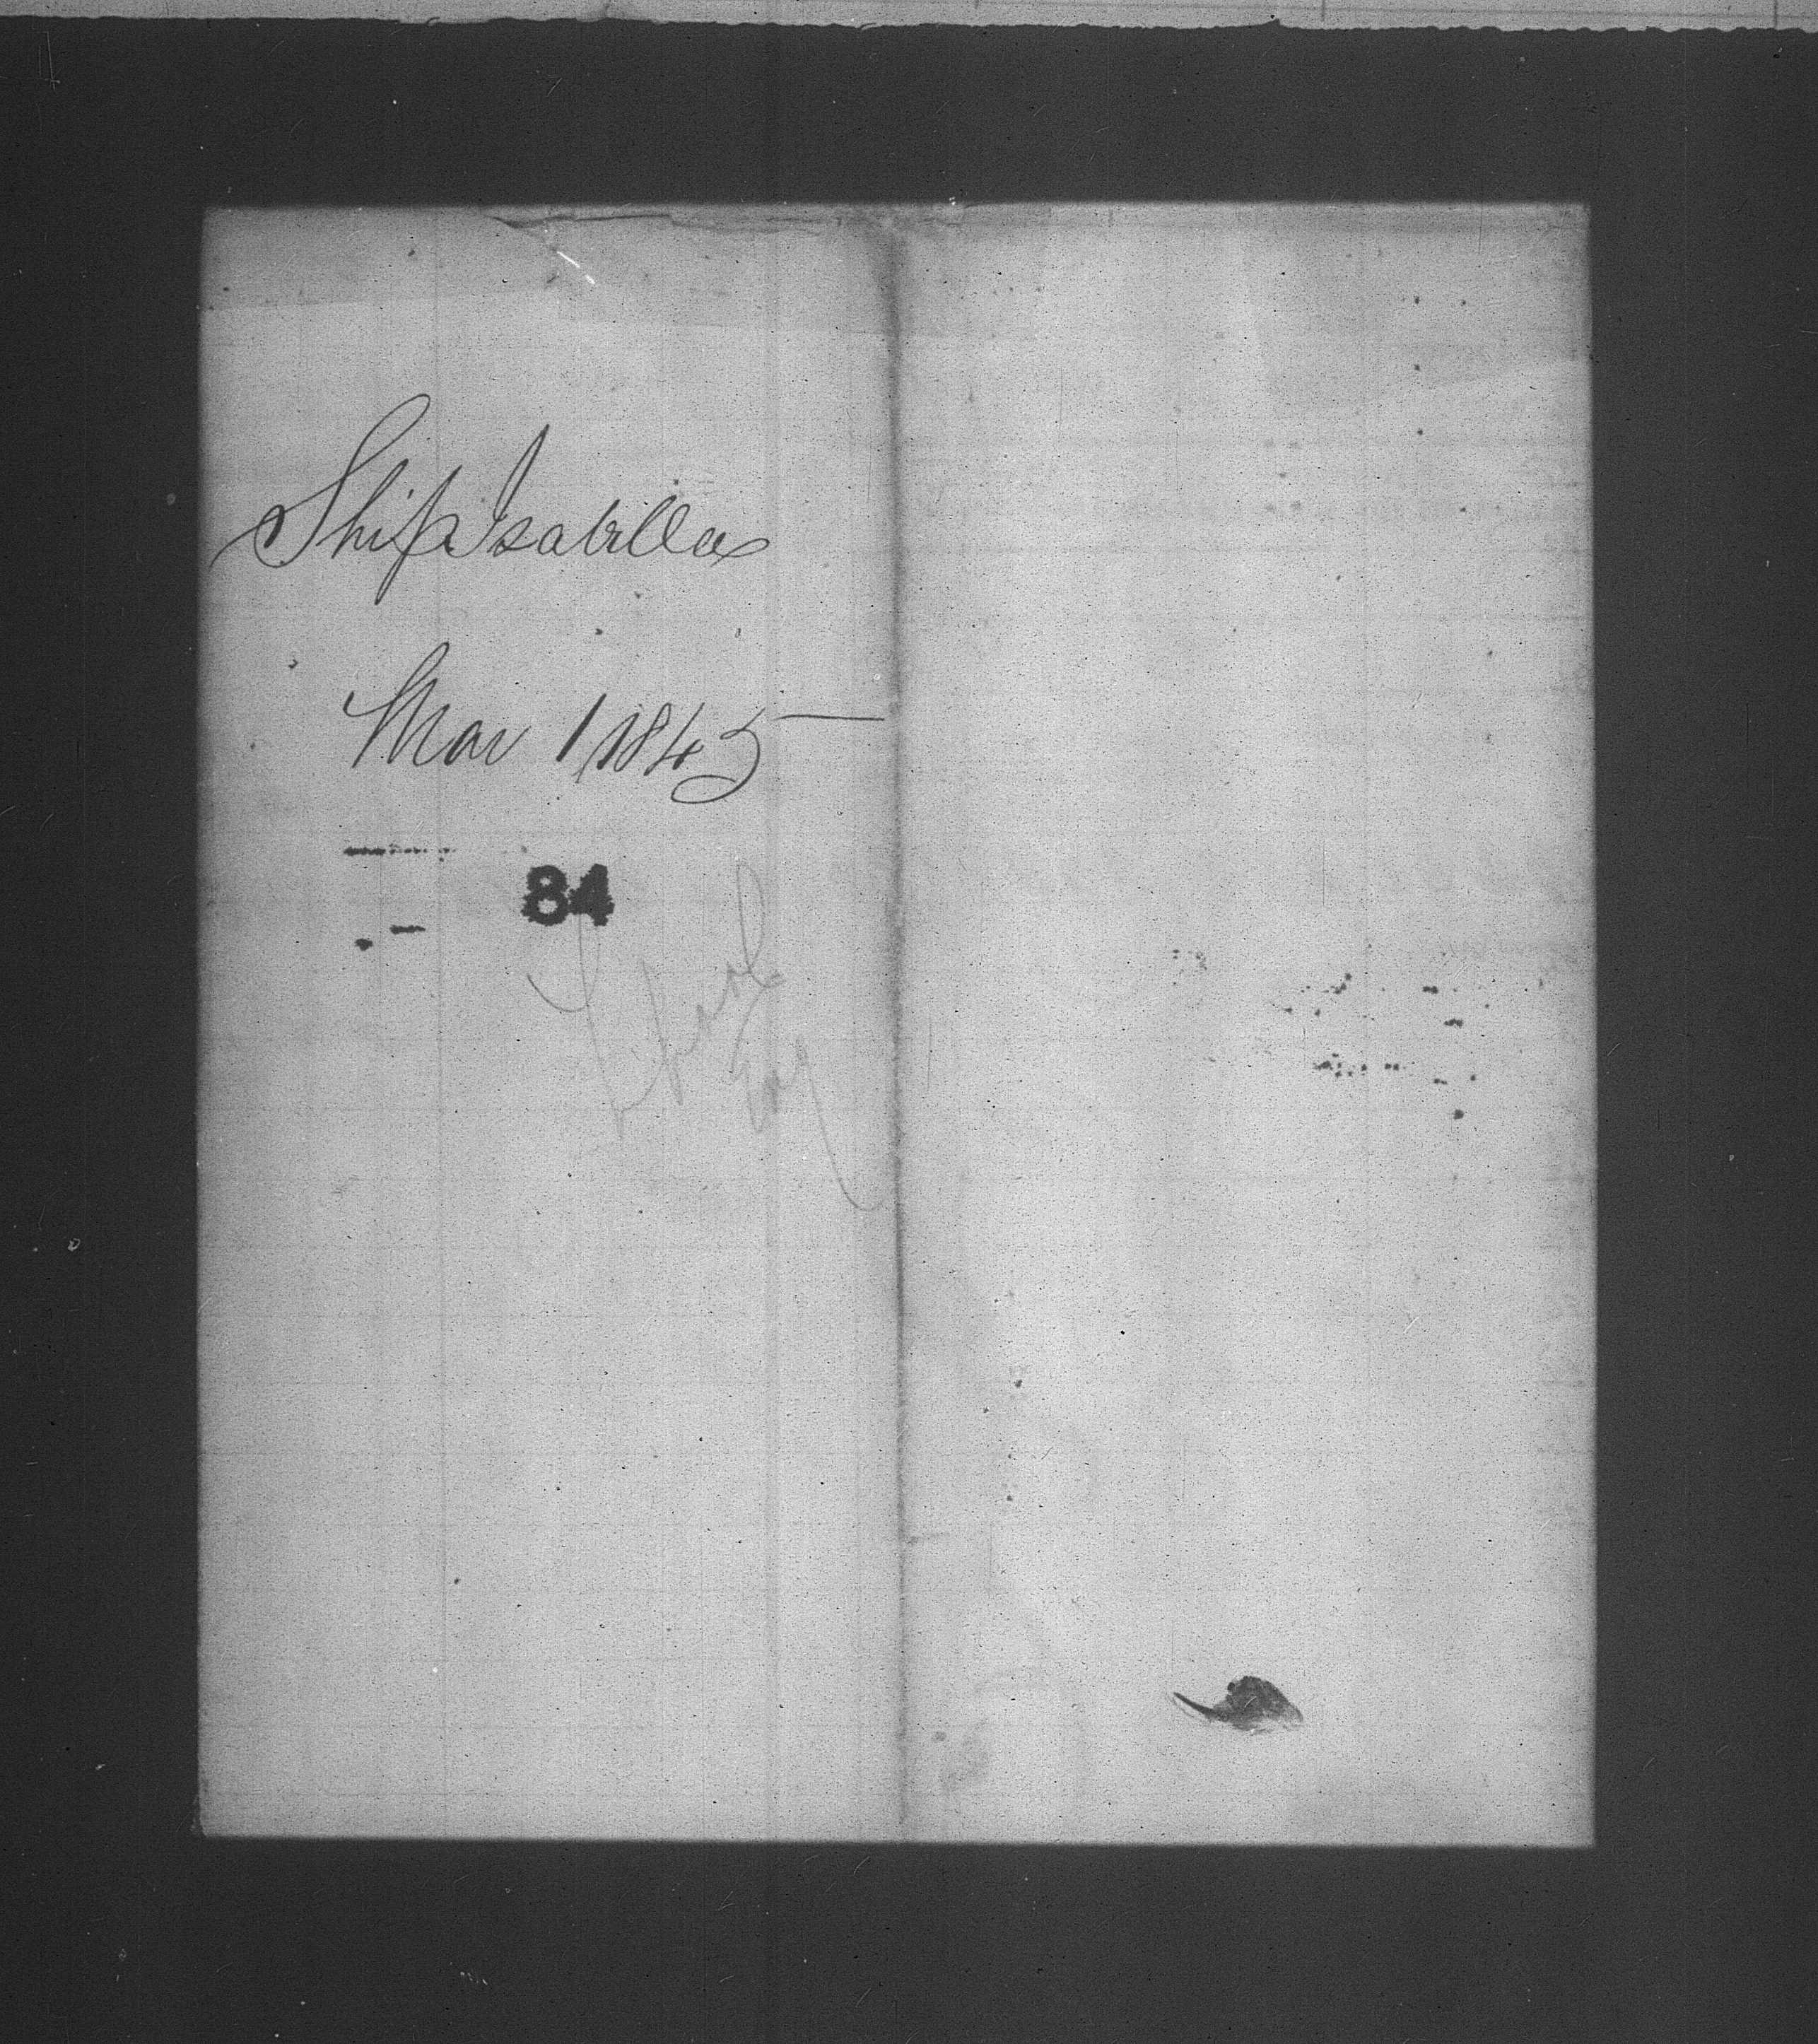 Ship Isabella
Mar 1, 1845
84